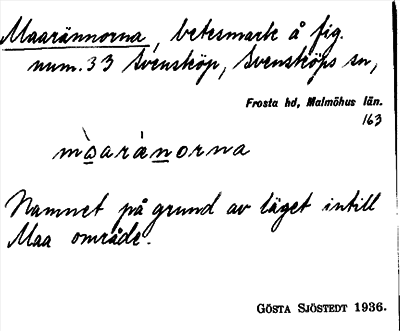 Maarännorna, betesmark å fig.
num. 33 Svensköp, Svensköps sn,
Frosta hd, Malmöhus län.
163
màarànorna
Namnet på grund av läget intill
Maa område.
GÖSTA SJÖSTEDT 1936.